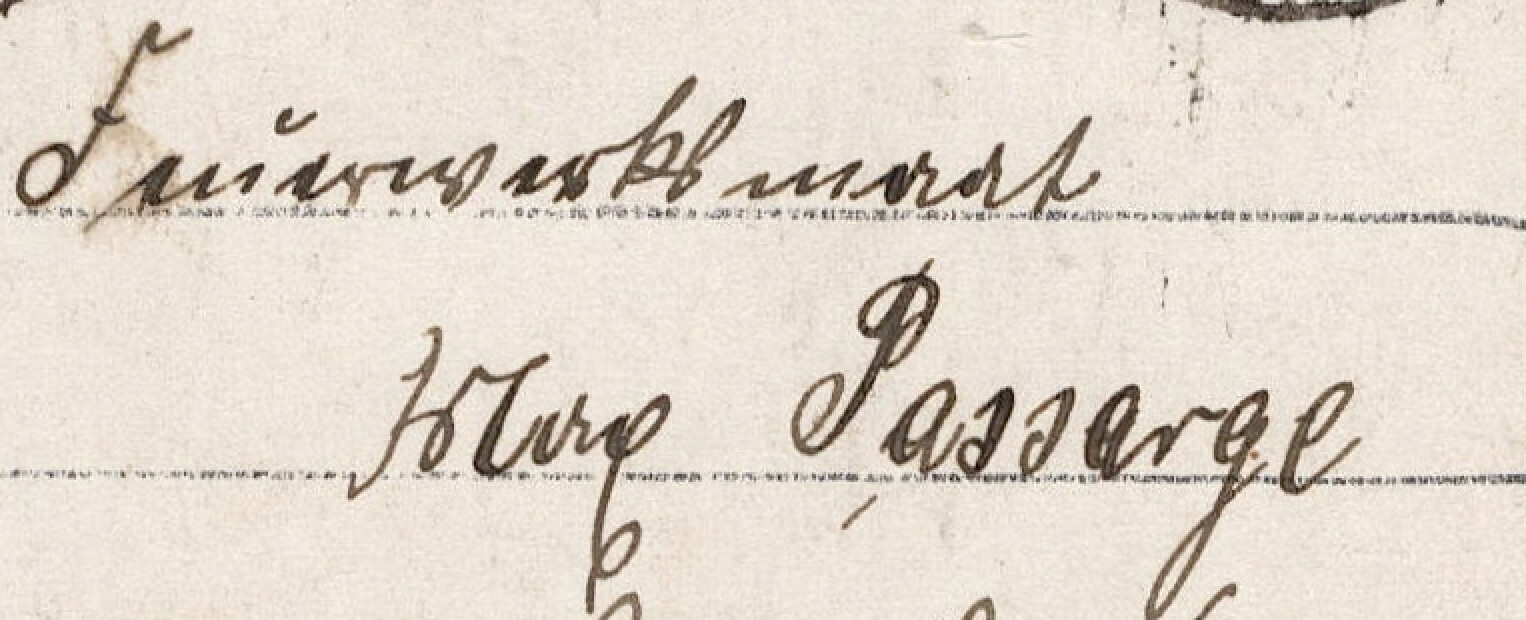 Feuerwerksmaat
Max Passarge